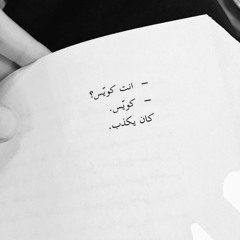 – انت كويّس؟
– كويّس.
كان يكذب.